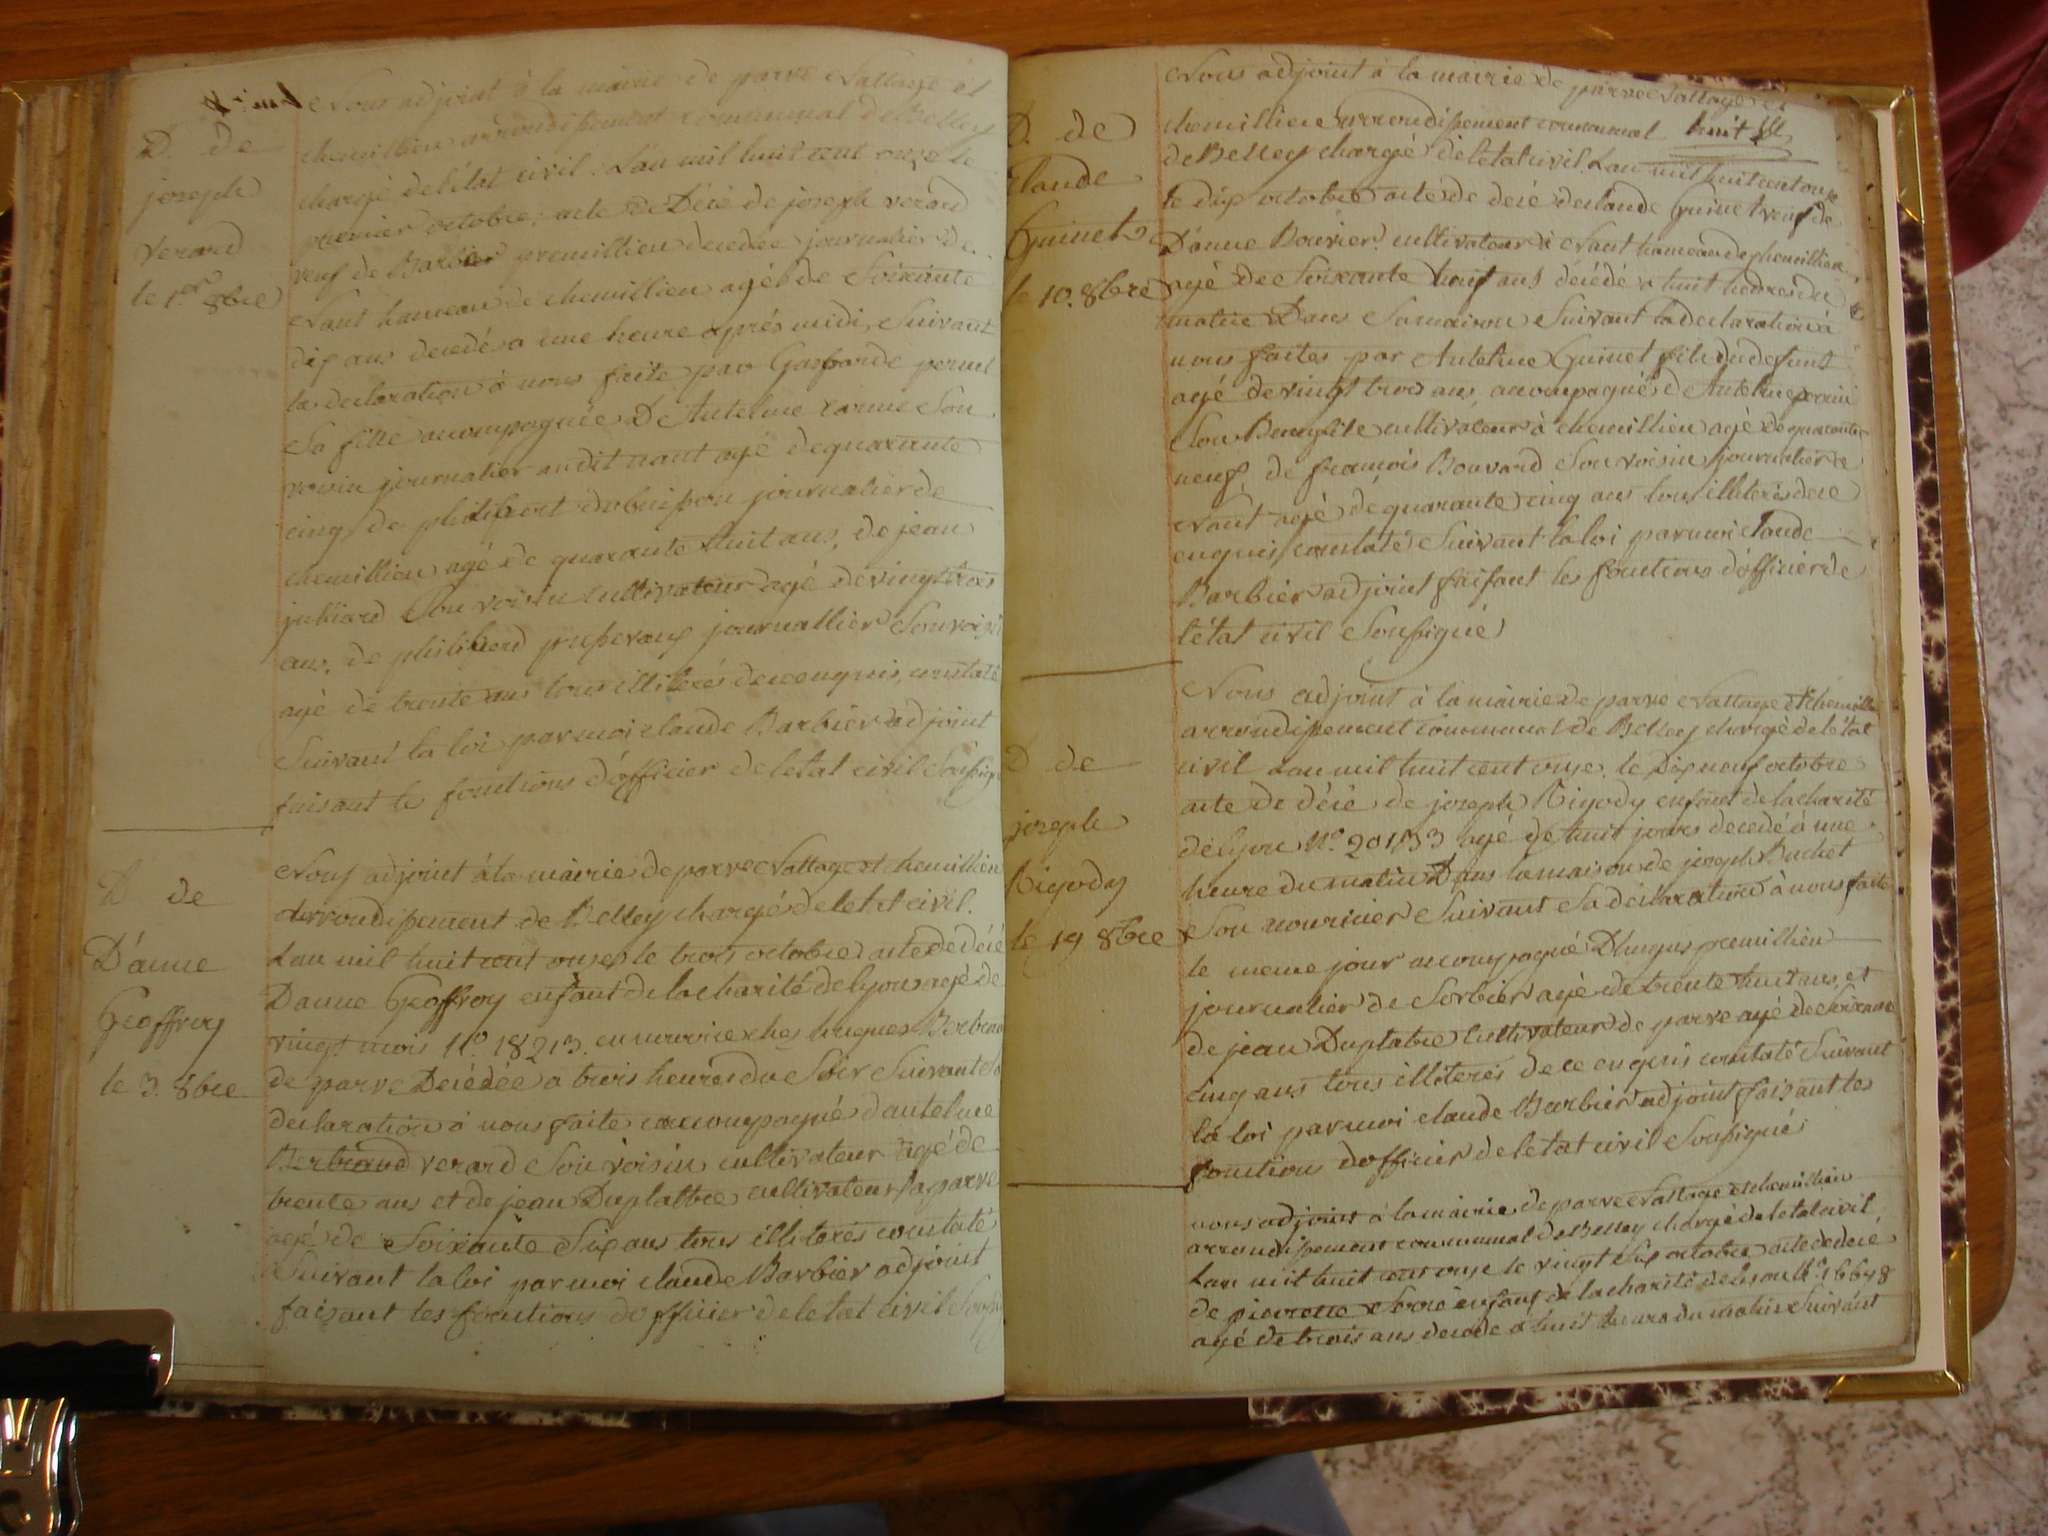 Nous adjoint à la mairie de parve Nattage et
chemillieu arrondissement communal de Belley
chargé de l'état civil. L'an mil huit cent onze le
premier octobre, acte de Décé de joseph verard
veuf de premillieu decedée journalier de
Nant hameau de chemillieu agé de Soixante
dix ans decedé a une heure après midi, Suivant
la declaration à nous faite par Gasparde
Sa fille accompagnée De Antelme Son
voisin journalier audit nant agé de quarante
cinq, de philibert dubuisson journalier de
chemillieu agé de quarante huit ans, de jean
juttiard Son voisin cultivateur agé de vingt trois
ans, de philiberd journallier Son voisin
agé de trente ans tous illiterés de ce enquis, constaté
Suivant la loi par moi claude Barbier adjoint
faisant les fonctions d'officier de letat civil
D. de
joseph
Verard
le 1er 8bre
Nous adjoint à la mairie de parve Nattage et chemillieu
arrondissement de Belley chargé de letat civil.
Lan mil huit cent onze le trois octobre acte de décé
Danne Geoffroy enfant de la charité de lyon agé de
vingt mois No. 18213. en nourrice ches hugues
de parve Décédée a trois heures du Soir Suivant
declaration à nous faite accompagné dantelme
Bertrand verard Son voisin cultivateur agé de
trente ans et de jean Duplattre cultivateur a parve
agé de Soixante Six ans tous illiterés constaté
Suivant la loi par moi claude Barbier adjoint
faisant les fonctions dofficier de letat civil
D de
D'anne
Geoffroy
le 3. 8bre
Nous adjoint à la mairie de parve Nattage et
chemillieu arrondissement communal huit
de Belley chargé de letat civil. Lan mil huit cent onze
le dix octobre acte de décé de claude Guinet veuf de
D'anne Bouvier cultivateur à Nant hameau de chemillieu
agé de Soixante neuf ans décédé a huit heures du
matin Dans Sa maison Suivant la declaration à
nous faites par Antelme Guinet fils du defunt
agé de vingt trois ans, accompagné de Antelme
Son cultivateur à chemillieu agé de quarante
neuf, de francois Bouvard Son voisin journalier de
Nant agé de quarante cinq ans tous illiterés de ce
enquis, constaté Suivant la loi par moi claude
Barbier adjoint faisant les fonctions d'officier de
l'état civil Soussigné
D. de
claude
Guinet
le 10. 8bre
Nous adjoint à la mairie de parve Nattage et chemillieu
arrondissement communal de Belley chargé de létat
civil Lan mil huit cent onze. le Dix neuf octobre
acte de décé de joseph Rigody enfant de la charité
de lyon No. 20133 agé de huit jours decedé à une
heure du matin Dans la maison de joseph Buchet
Son nouricier Suivant Sa déclaration à nous faite
le meme jour accompagné Dhugus premillieu
journalier de Sorbier agé de trente huit ans, et
de jean Duplatre cultivateur de parve agé de Soixante
cinq ans tous illiterés de ce enquis constaté Suivant
la loi par moi claude Barbier adjoint faisant les
fonctions dofficier de letat civil Soussigné
D de
joseph
Rigody
le 19 8bre
nous adjoint à la mairie de parve Nattage et chemillieu
arrondissement communal de Belley chargé de letat civil
Lan mil huit cent onze le vingt Six octobre acte de décé
de pierrette enfant de la charité de lyon No. 16648
agé de trois ans decede a huit heures du matin Suivant